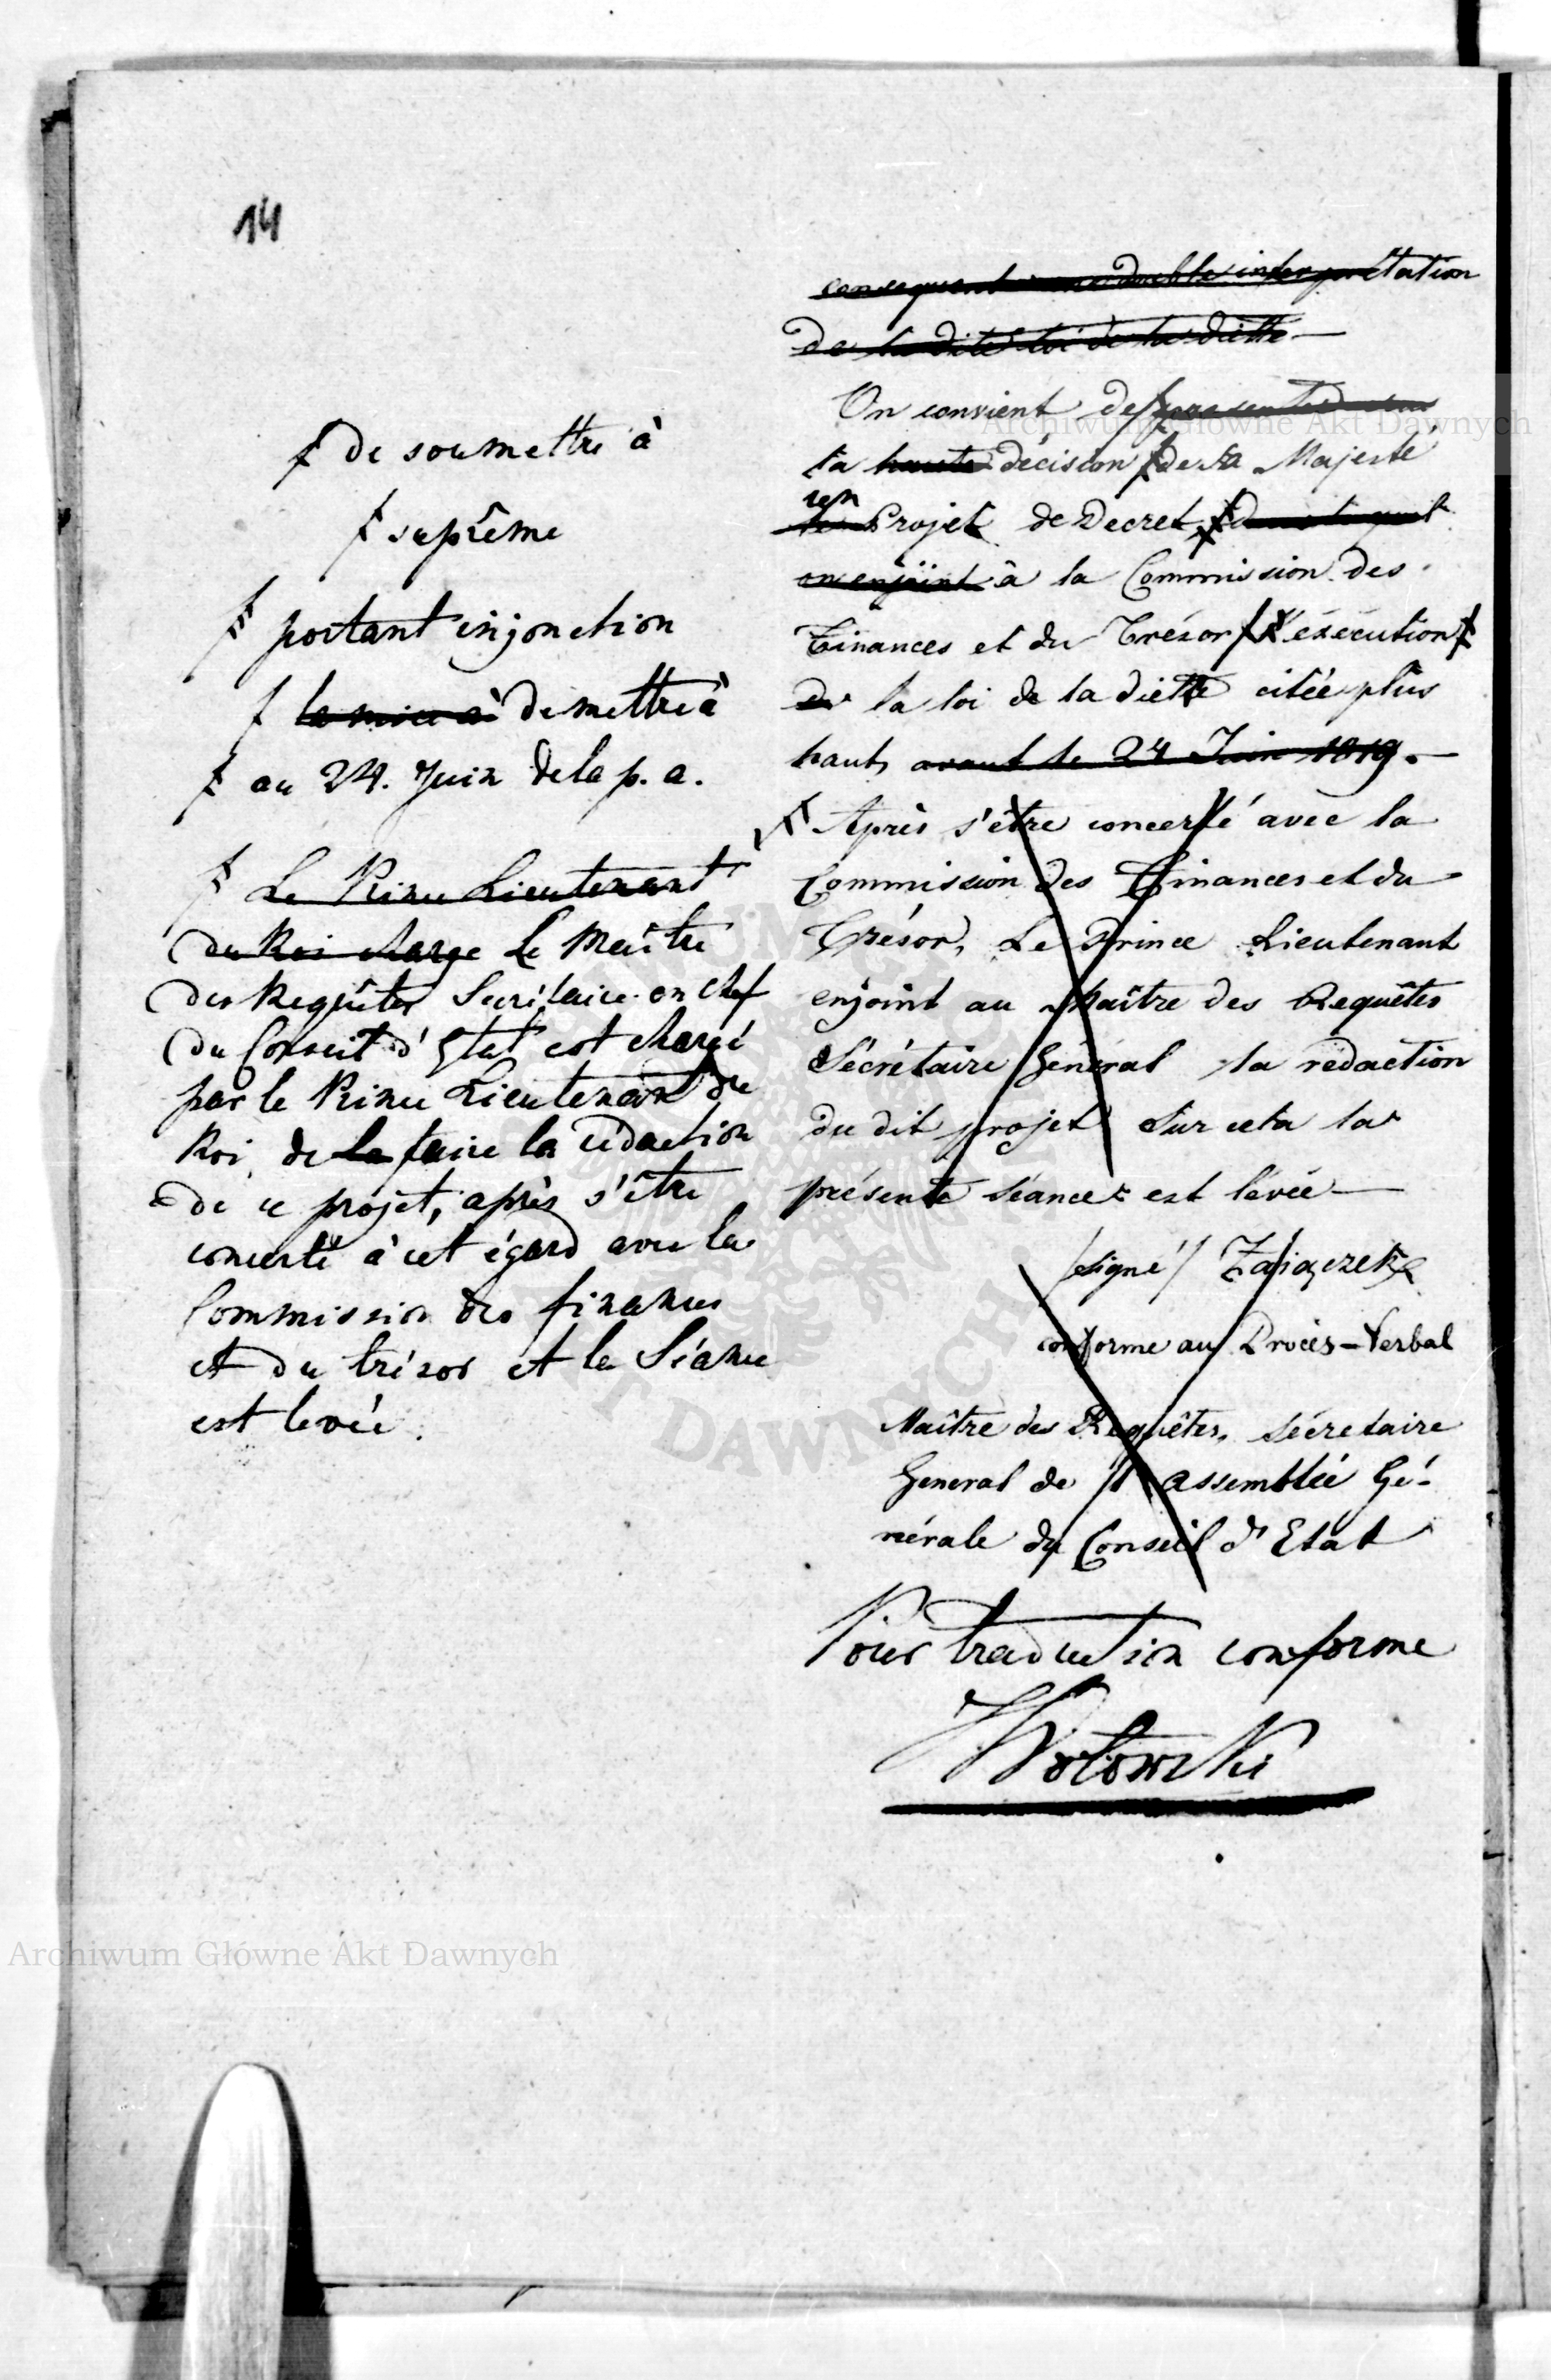 14
de soumettre à
suprême
portant injonction
la mise à de mettre à
au 24. Juin de la p. a.
Le Prince Lieutenant
du Roi charge Le Maître
des Requêtes Secrétaire en chef
du Conseil d'Etat est chargé
par le Prince Lieutenant du
Roi, de la faire la rédaction
de ce projet, après s'être
concerté à cet égard avec la
Commission des finances
et du trésor et la Séance
est levée.
consequent une double interprétation
de la dite loi de la diette —
On convient de présenter
la haute décision de Sa Majesté
Projet de Decret
on enjoint à la Commission des
Finances et du Trésor l'éxécution
de la loi de la diette citée plus
haut, avant le 24 Juin 1819. —
Après s'être concerté avec la
Commission des Finances et du
Trésor, Le Prince Lieutenant
enjoint au Maître des Requêtes
Sécrétaire Général la rédaction
du dit projet Sur cela la
présente séance est levée —
/signé/ Zaiączek
conforme au Procès-Verbal
Maître des Requêtes, Sécretaire
General de l'assemblée Gé-
nérale du Conseil d'Etat
Pour traduction conforme
Wołowski
Archiwum Główne Akt Dawnych
Archiwum Główne Akt Dawnych